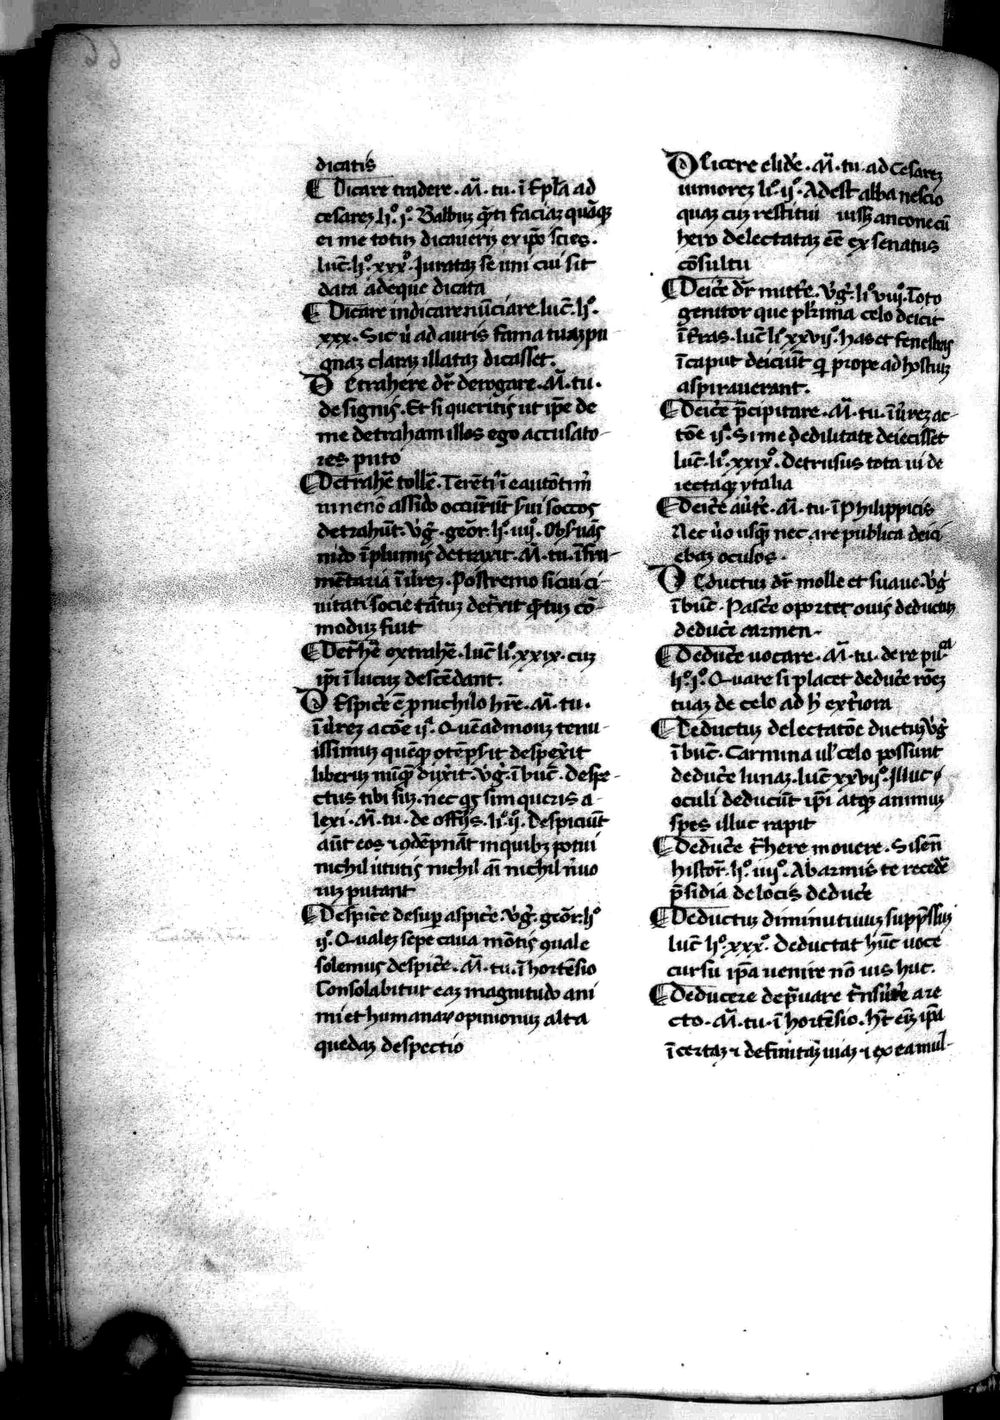 dicatis
¶ Dicare tradere · M̄ · tu · ī Ep̄la ad
cesarez · li° · i° · Balbuz q̄ti faciaz quāqz
ei me totuz dicaueriz ex ip̄o scies ·
luc̄ · li° · xxx° · Iurataz se uni cui sit
data adeque dicata
¶ Dicare indicare nūciare · luc̄ · li° ·
xxx · Sic ū ad auris fama tuaz pu
gnaz claraz illataz dicasset ·
Detrahere dr̄ derogare · M̄ · tu ·
de signis · Et si queritis ut ip̄e de
me detraham illos ego accusato
res puto
¶ Detrahē tollē · Terētiꝰ ī eautōtim̄
detrahūt · v̄g̃ · geōr · li° · iiii° ·
nido īplumis detraxit · M̄ · tu · ī fru
mētaria ī ūrez · Postremo si cui ci
uitati socie
moduz fuit
¶ Detrhē extrahē · luc̄ li° · xxix · cuz
ip̄i ī lucuz descēdant ·
Despicē ē p nichilo hr̄e · M̄ · tu ·
ī ūrez acōē iiᵃ · Quēadmouz tenu
issimuz quēqz
liberiuz nūqz duxit · v̄g̃ · ī buc̄ · despe
ctus tibi suz · nec qs sim queris a
lexi · M̄ · tu · de offīs · li° · ii · Despiciūt
aūt eos ⁊ ꝯdēpnāt in quibz potui
nichil uirtutis nichil aī nichil nuo
ruz putant
¶ Despicē desup aspicē · v̄g̃ · geōr · li°
ii° · Qualez sepe caua mōtis quale
solemus despicē · M̄ · tu · ī hortēsio
Consolabitur eaz magnitudo ani
mi et humanaꝝ opinionuz alta
quedaz despectio
Dlicere elidē · M̄ · tu · ad Cesarez
iuniorez li° · ii° · Adest alba nescio
quaz cuz restitui uisz ancone cū
hero delectataz eē ex senatus
cōsultu
¶ Deicē dr̄ mittē · v̄g̃ · li° viii° · Toto
genitor que plurima celo deicit
ī tras · luc̄ li° xxvii° · has et fenestras
ī caput deiciūt q prope ad hostiuz
aspirauerant ·
¶ Deicē p̄cipitare · M̄ · tu · ī ūrez ac
tōe iiᵃ · Si me dedilitate deiecisset
luc̄ · li° · xxix° · detrusus tota ui de
iectaqz ytalia
¶ Deicē aūtē · M̄ · tu · ī Philippicis
Nec ūo usqz nec · are publica deici
ebaz oculos ·
Deductuz dr̄ molle et suaue · v̄g̃
ī buc̄ · Pascē oportet ouis deductuz
deducē carmen ·
¶ Deducē uocare · M̄ · tu · de re puᶜᵃ
li° · i° · Quare si placet deducē rōez
tuaz de celo ad h̄ extiora
¶ Deductuz delectatōe ductuz v̄g̃
ī buc̄ · Carmina ul̄ celo possunt
deducē lunaz · luc̄ xxvii° · Illuc
oculi deducūt ip̄i atqz animuz
spes illuc rapit
¶ Deducē trhere mouere · Sisen̄
histor̄ · li° · iiii° · Ab armis te recedē
p̄sidia de locis deducē
¶ Deductuz diminutiuuz supp̄ssuz
luc̄ li° · xxx° · deductat hūc uoce
cursu ip̄a uenire nō uis huc ·
¶ Deducere dep̄uare trnsūtē are
cto · M̄ · tu · ī hortēsio · ht eiz ip̄a
īcertaz ⁊ definitaz uiaz ⁊ ex ea mul